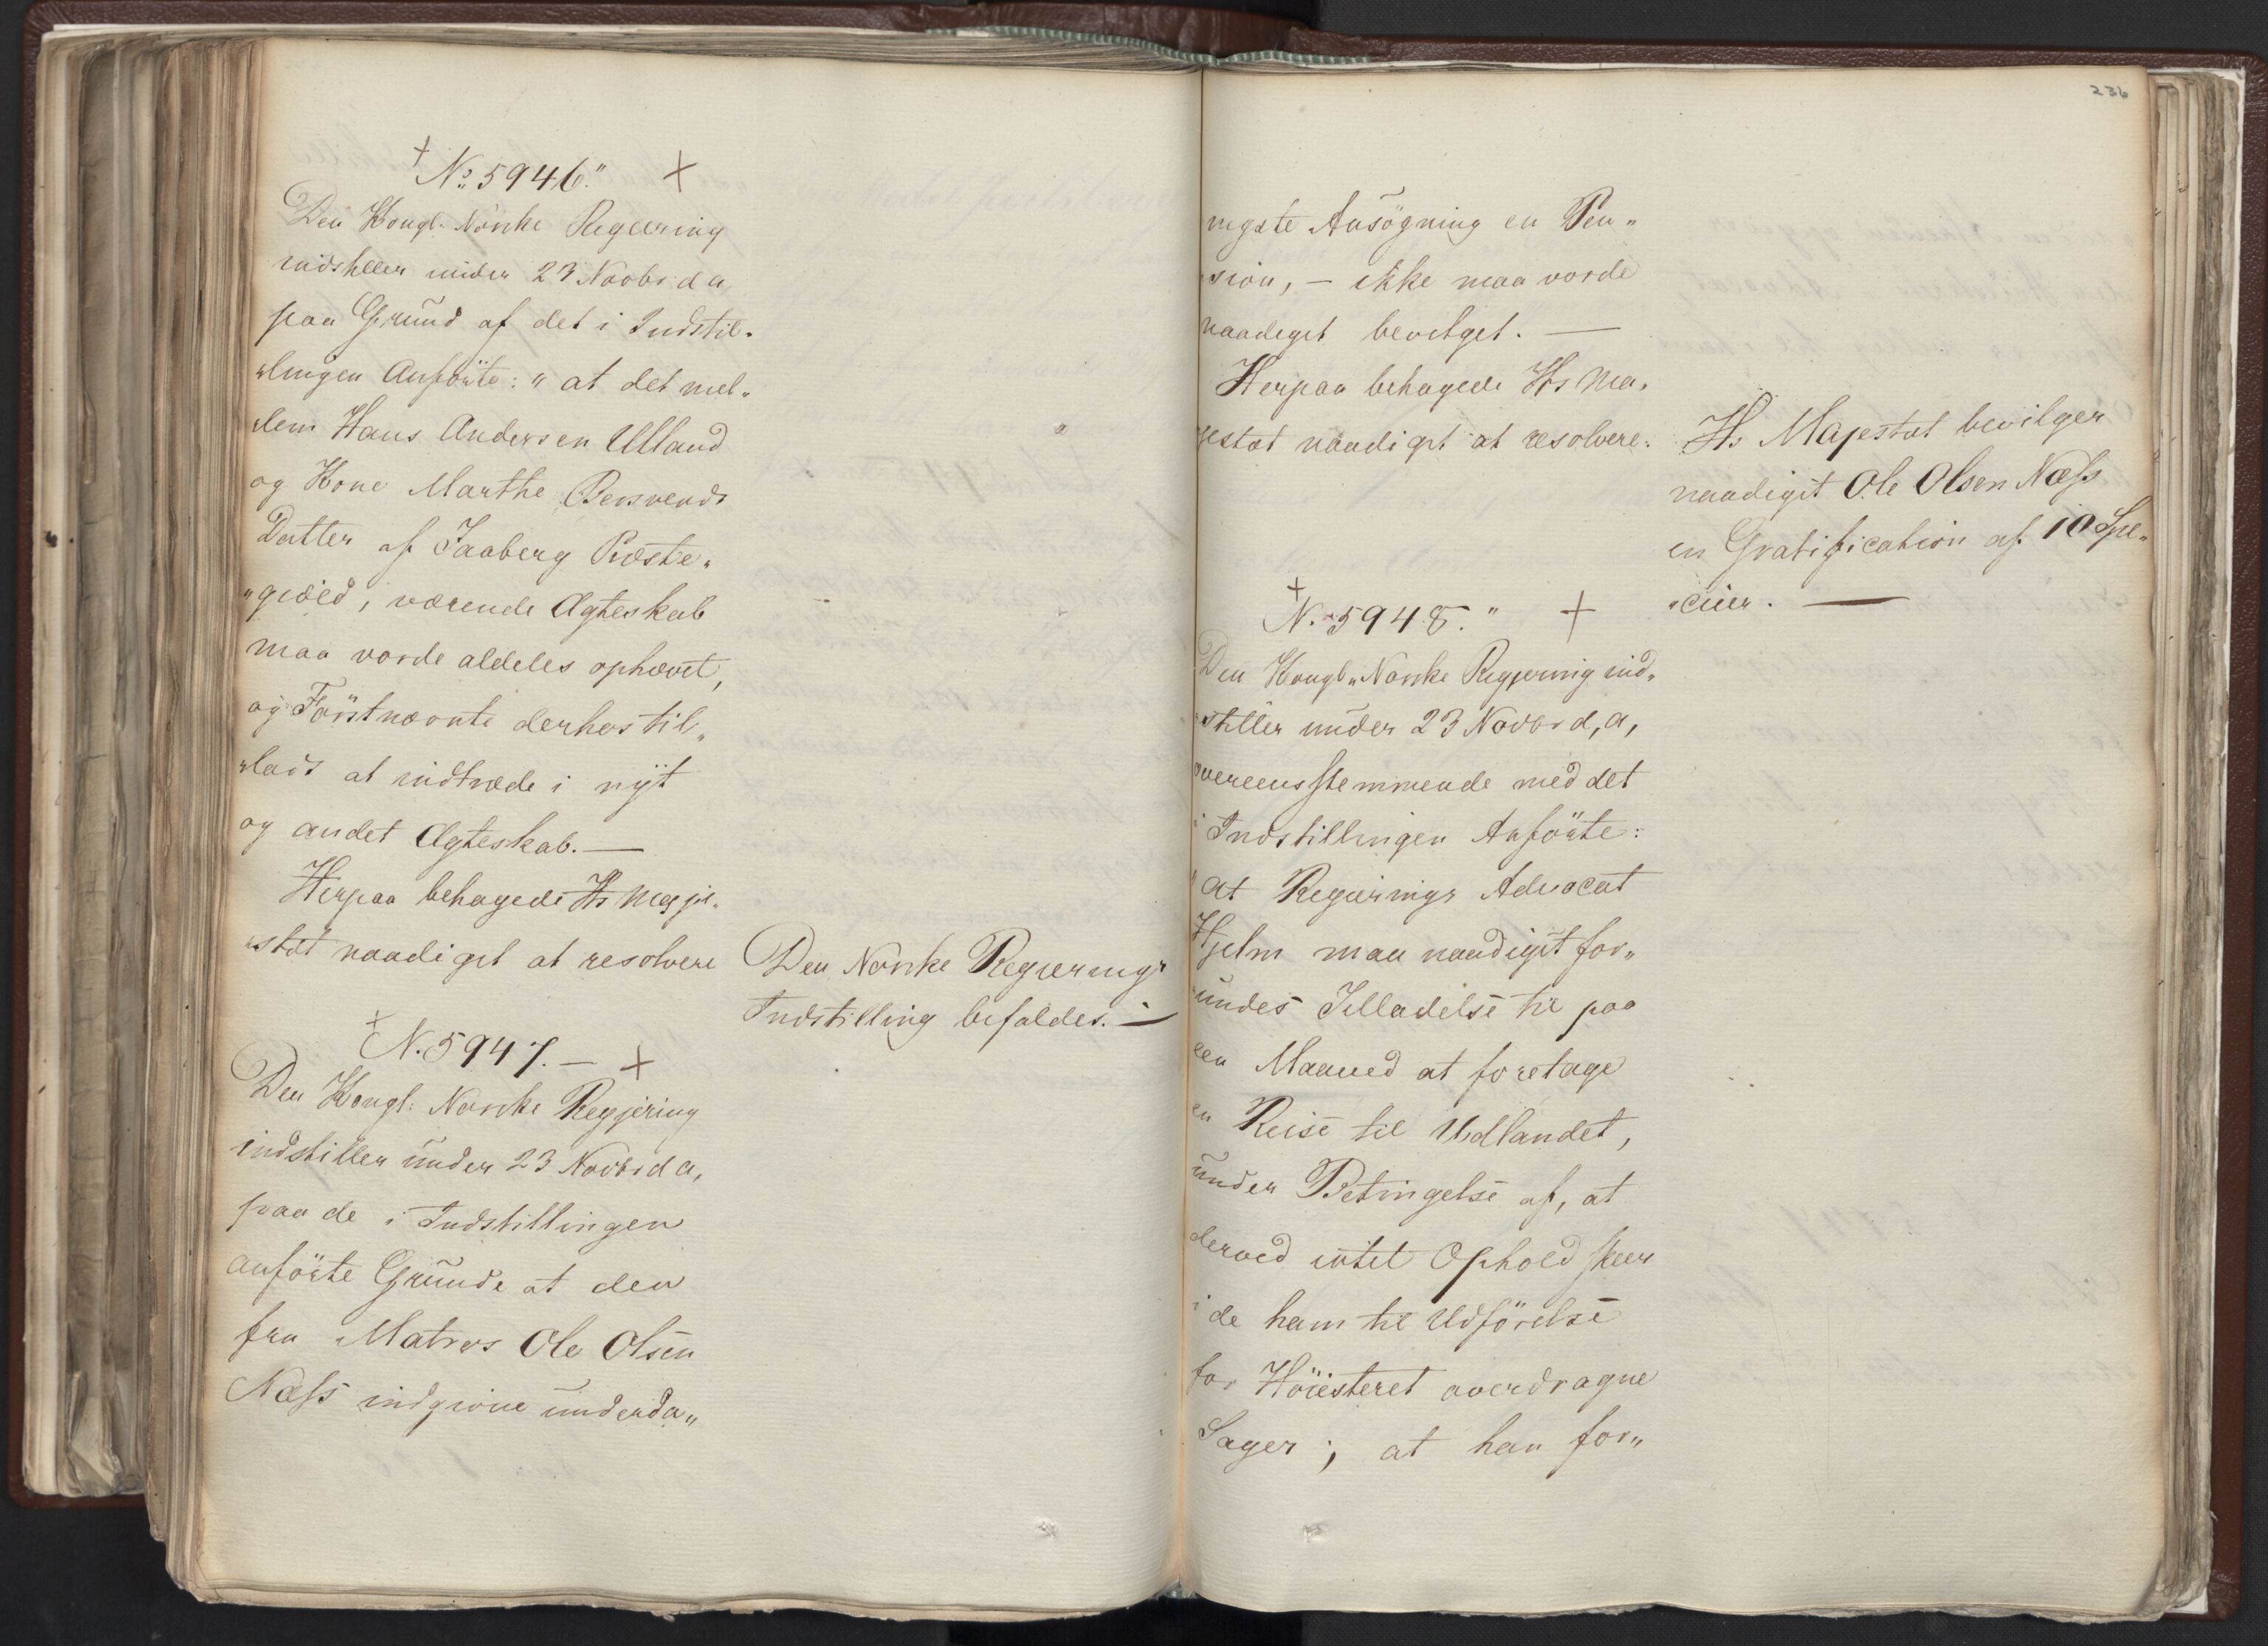 † No 5946." ×
Den Kongl. Norske Regiering
indstiller under 23 Novbr d a
paa Grund af det i Indstil„
„lingen Anförte: " at det mel„
„lem Hans Andersen Ulland
og Kone Marthe
Datter af Faaberg Præste„
„gield, værende Ægteskab
maa vorde aldeles ophævet,
og Förstnævnte derhos til„
„lads at indtræde i nÿt
og andet Ægteskab. —
Herpaa behagede Hs Maje„
„stæt naadigst at resolvere
Den Norske Regierings
Indstilling bifaldes. —
† N. 5947. — ×
Den Kongl: Norske Regjering
indstiller under 23 Novbr d a,
paa de i Indstillingen
anförte Grunde at den
fra Matros Ole Olsen
Næss indgivne underda„
236
nigste Ansögning en Pen„
„sion, — ikke maa vorde
naadigst bevilget. —
Herpaa behagede Hs Ma„
jestæt naadigst at resolvere:
Hs Majestæt bevilger
naadigst Ole Olsen Næss
en Gratification af 10 Spe„
„cier. —
† N. 5948. " ×
Den Kongl„ Norske Regjering ind„
„stiller under 23 Novbr d, a,
overeensstemmende med det
i Indstillingen Anförte:
" at Regierings Advocat
Hjelm maa naadigst for„
„undes Tilladelse til paa
een Maaned at foretage
en Reise til Udlandet,
under Betingelse af, at
derved intet Ophold skeer
i de ham til Udförelse
for Höiesteret overdragne
Sager; at han for„